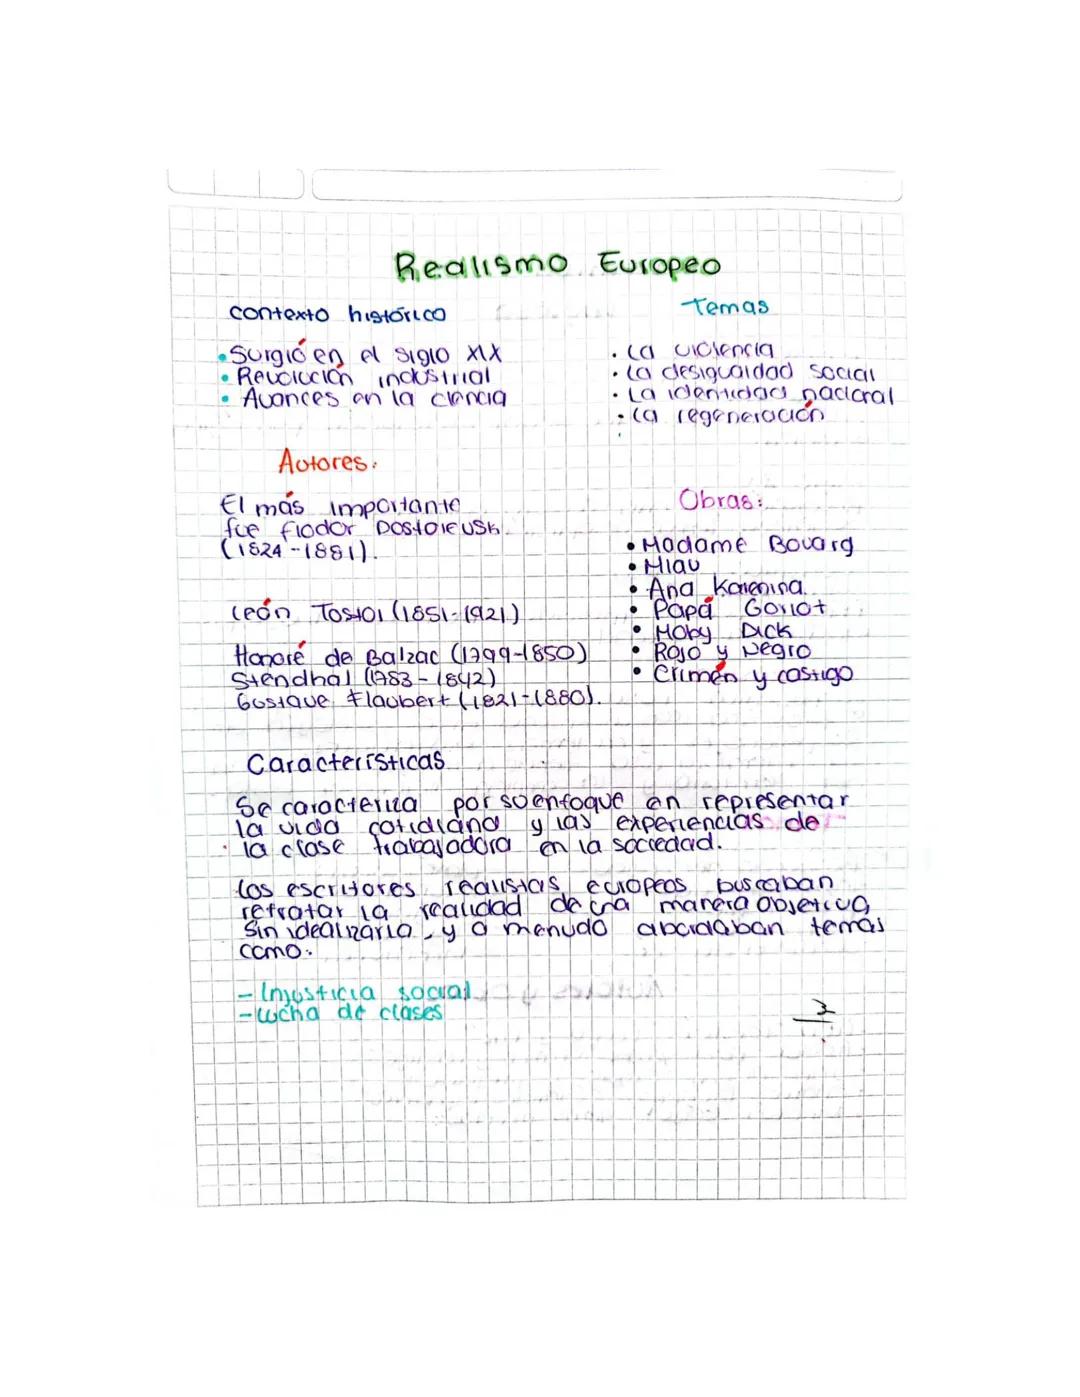 Realismo Europeo
contexto histórico
• Surgió en el siglo XIX
• Revolución industrial
• Avances en la ciencia
Temas
• La violencia
• La desigualdad social
• La identidad nacional
• La regeneración
Autores:
El más importante
fue fiodor Dostoievsk.
(1824-1881).
León Tostoi (1851-1921)
Honoré de Balzac (1799-1850)
Stendhal (1783-1842)
Gustave Flaubert (1821-1880).
Obras:
• Madame Bovarg
• Miau
• Ana Karenina.
• Papá Goriot
• Moby Dick
• Rojo y Negro
• Crimén y castigo
Características
Se caracteriza por su enfoque en representar
la vida cotidiana y las experiencias de
la clase trabajadora en la sociedad.
Los escritores realistas europeos buscaban
retratar la realidad de una manera objetiva,
sin idealizarla, y a menudo abordaban temas
como:
- Injusticia social
- Lucha de clases
3